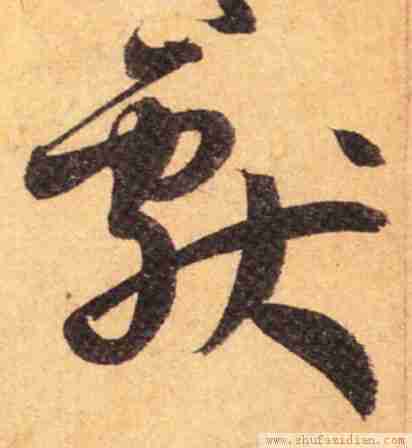 獻
www.zhufazidian.com